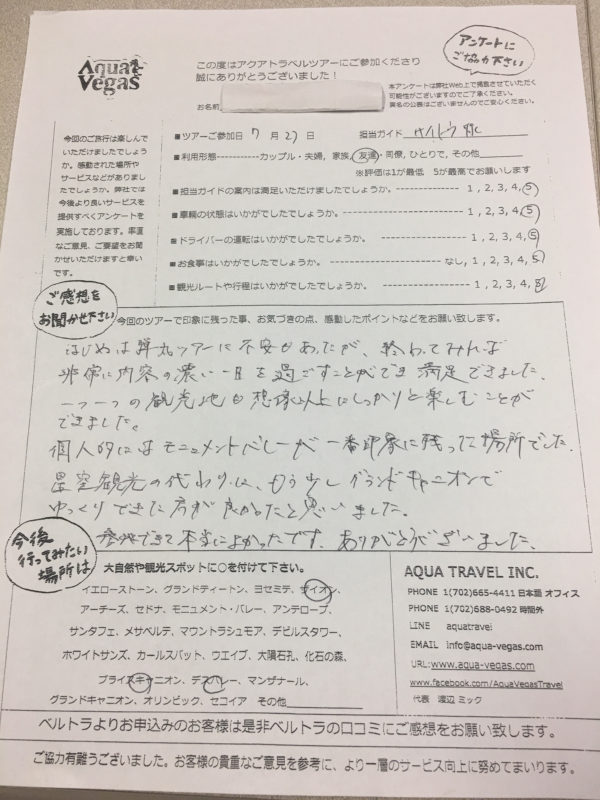 Aqua Vegas
この度はアクアトラベルツアーにご参加くださり
誠にありがとうございました！
アンケートに
ご協力下さい
本アンケートは弊社Web上で掲載させていただく
可能性がございますのでご了承ください。
実名の公表はございませんのでご安心ください。
お名前
今回のご旅行は楽しんで
いただけましたでしょう
か。感動された場所や
サービスなどがありまし
たでしょうか。弊社では
今後より良いサービスを
提供すべくアンケートを
実施しております。率直
なご意見、ご要望をお聞
かせいただけますと幸い
です。
■ツアーご参加日 7 月 27 日 担当ガイド サイトウ
■利用形態-----------カップル・夫婦, 家族, 友達・同僚, ひとりで, その他
※評価は1が最低 5が最高でお願いします
■担当ガイドの案内は満足いただけましたでしょうか。-------------------- 1, 2, 3, 4, 5
■車輌の状態はいかがでしたでしょうか。-------------------- 1, 2, 3, 4, 5
■ドライバーの運転はいかがでしたでしょうか。-------------------- 1, 2, 3, 4, 5
■お食事はいかがでしたでしょうか。-------------------- なし, 1, 2, 3, 4, 5
■観光ルートや行程はいかがでしたでしょうか。-------------------- 1, 2, 3, 4, 5
ご感想を
お聞かせ下さい
今回のツアーで印象に残った事、お気づきの点、感動したポイントなどをお願い致します。
はじめは弾丸ツアーに不安があったが、終わってみれば
非常に内容の濃い一日を過ごすことができ満足できました。
一つ一つの観光地も想像以上にしっかりと楽しむことが
できました。
個人的にはモニュメントバレーが一番印象に残った場所でした。
星空観光の代わりに、もう少しグランドキャニオンで
ゆっくりできた方が良かったと思いました。
参加できて本当によかったです。ありがとうございました。
今後
行ってみたい
場所は
大自然や観光スポットに○を付けて下さい。
イエローストーン、グランドティートン、ヨセミテ、ザイオン、
アーチーズ、セドナ、モニュメント・バレー、アンテロープ、
サンタフェ、メサベルデ、マウントラシュモア、デビルスタワー、
ホワイトサンズ、カールスバット、ウエイブ、大隕石孔、化石の森、
ブライスキャニオン、デスバレー、マンザナール、
グランドキャニオン、オリンピック、セコイア その他
AQUA TRAVEL INC.
PHONE 1(702)665-4411 日本語 オフィス
PHONE 1(702)688-0492 時間外
LINE aquatravel
EMAIL info@aqua-vegas.com
URL:www.aqua-vegas.com
www.facebook.com/AquaVegasTravel
代表 渡辺 ミック
ベルトラよりお申込みのお客様は是非ベルトラの口コミにご感想をお願い致します。
ご協力有難うございました。お客様の貴重なご意見を参考に、より一層のサービス向上に努めてまいります。